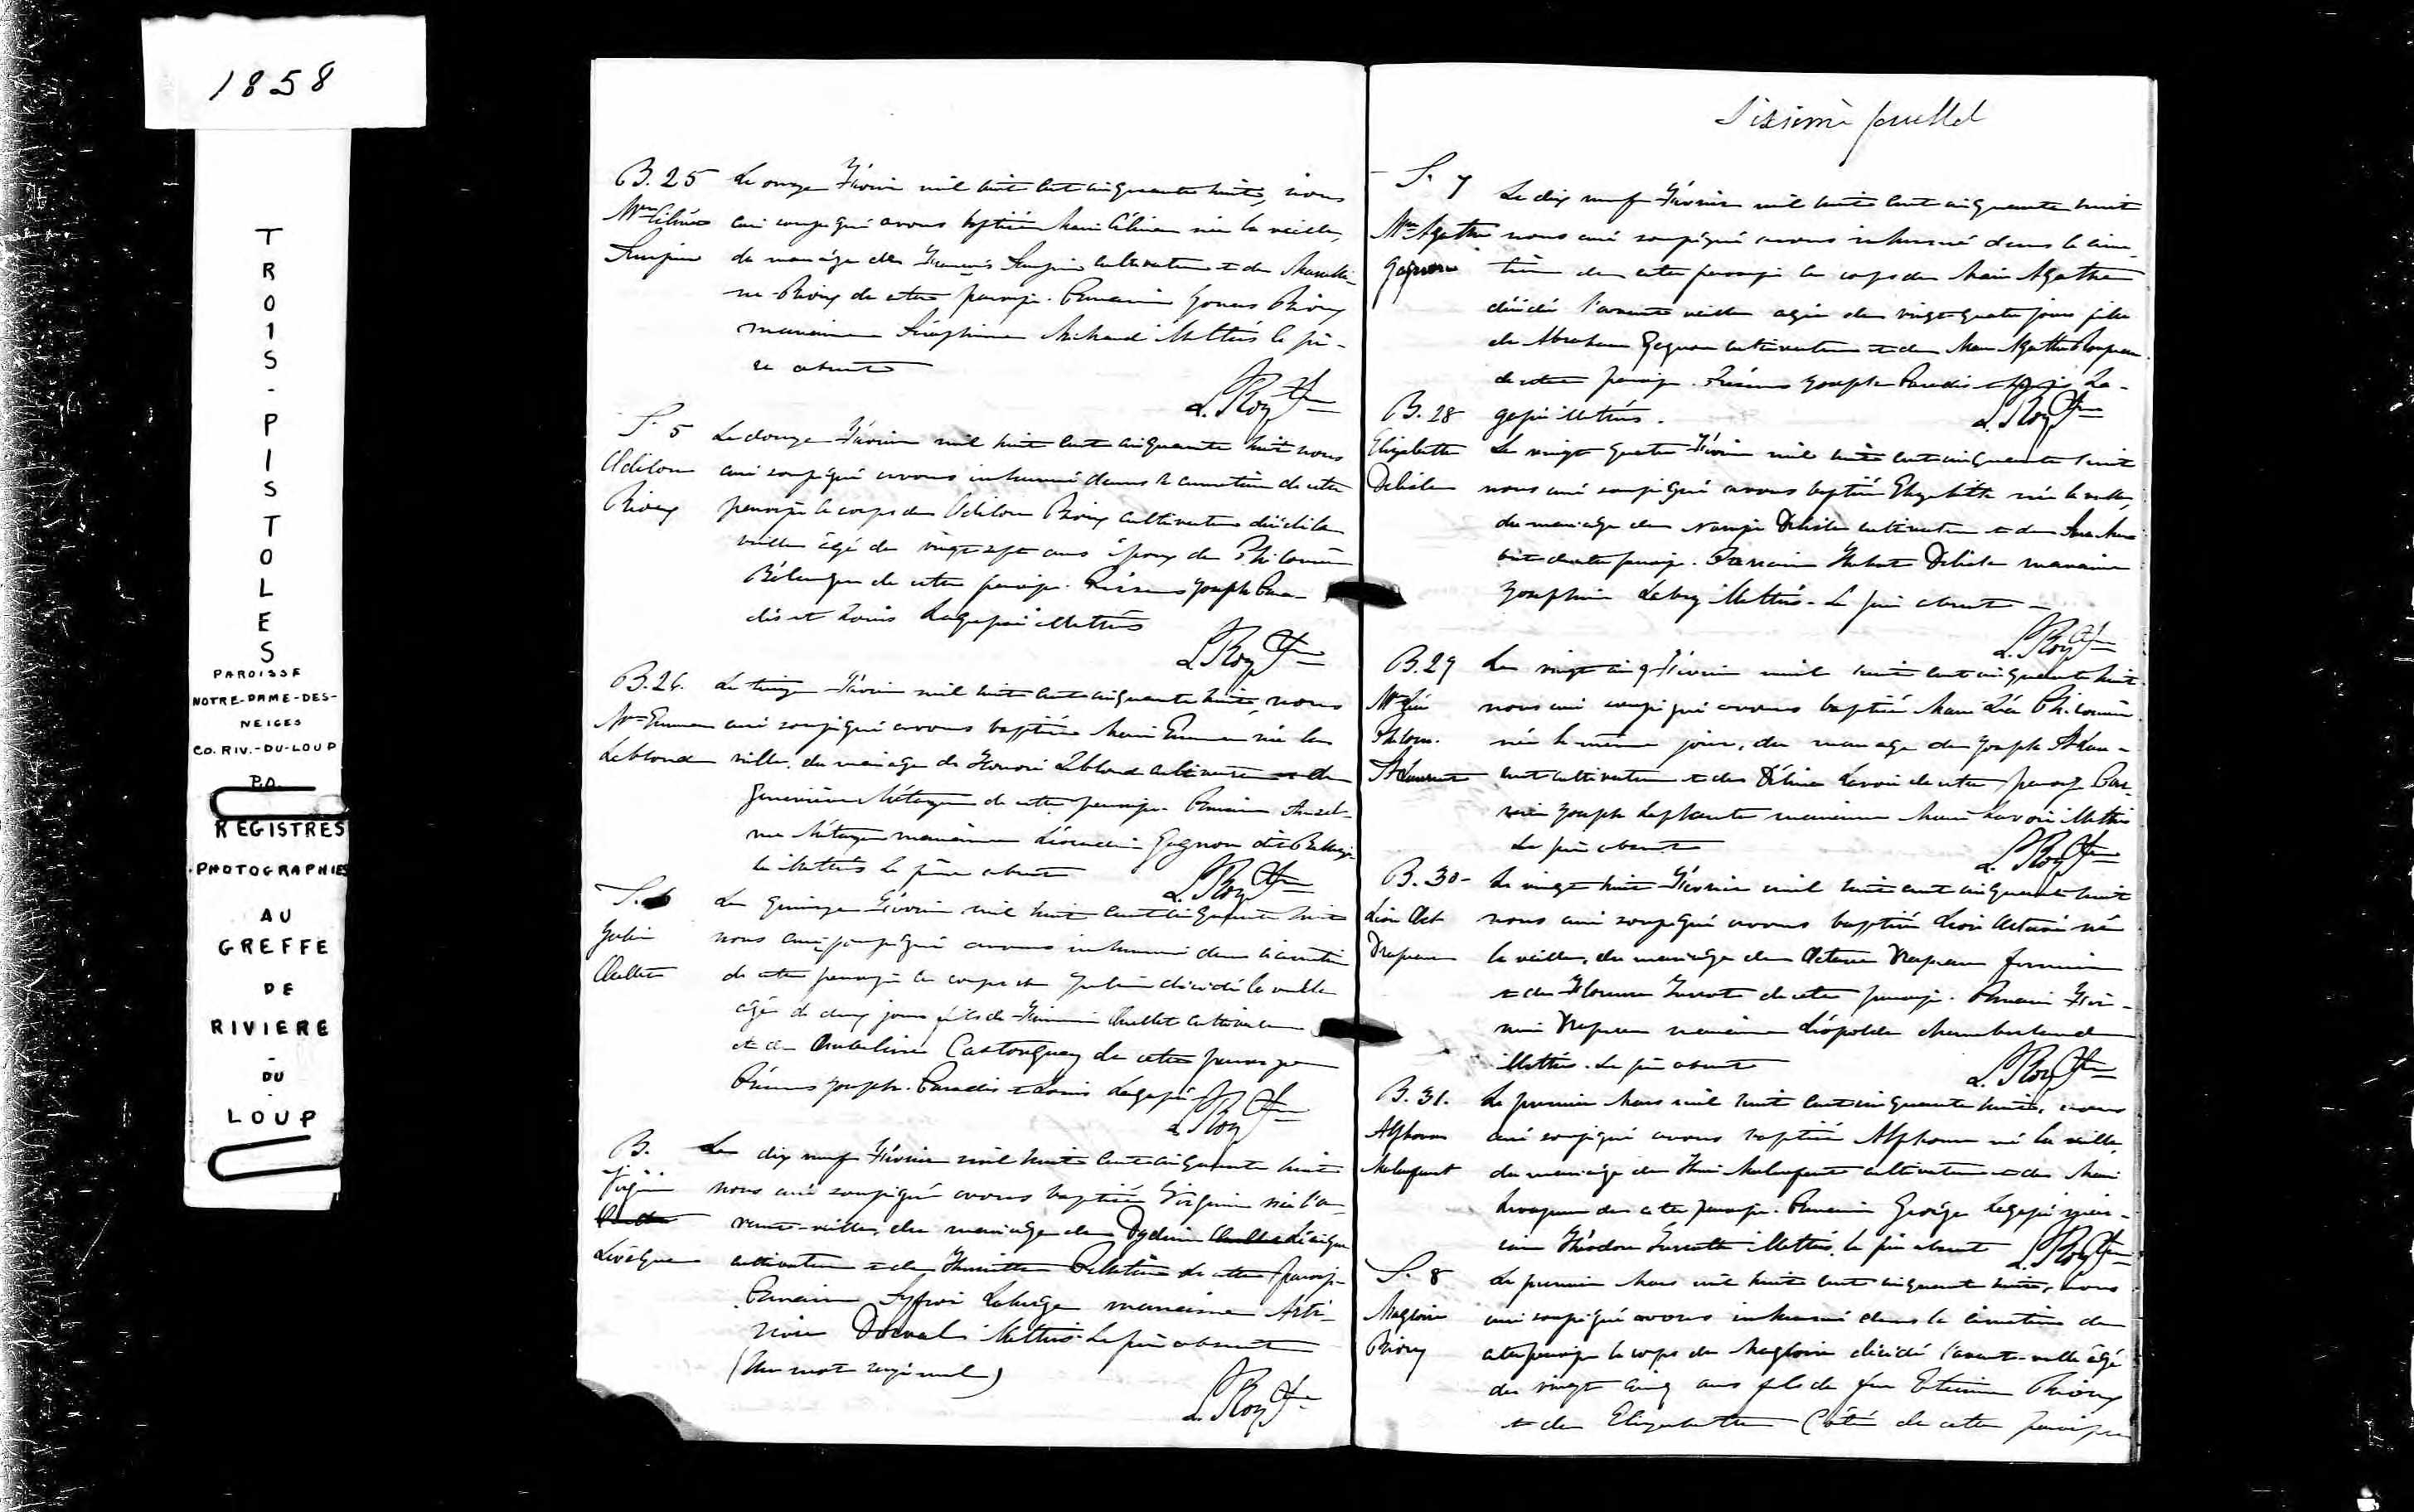 1858
TROIS-PISTOLES
PAROISSE
NOTRE-DAME-DES-
NEIGES
CO. RIV.-DU-LOUP
P.Q.
REGISTRES
PHOTOGRAPHIES
AU
GREFFE
DE
RIVIERE
-
DU
-
LOUP
B. 25
Mie Célina
Le onze Février mil huit cent cinquante huit, nous
curé soussigné avons baptisé Marie Célina née la veille,
du mariage de François cultivateur et de Marcelli-
ne Rioux de cette paroisse. Parrain Rioux
marraine Séraphine Michaud illettrés le pè-
re absent
L. Roy Ptre
S. 5
Odilon
Rioux
Le douze Février mil huit cent cinquante huit nous
curé soussigné avons inhumé dans le cimetière de cette
paroisse le corps de Odilon Rioux cultivateur décédé la
veille âgé de vingt sept ans époux de Philomène
Bélanger de cette paroisse. Présens Joseph Para-
dis et Louis Lagassé illettrés
L. Roy Ptre
B. 26.
Mie Emma
Leblond
Le treize Février mil huit cent cinquante huit, nous
curé soussigné avons baptisé Marie Emma née la
veille, du mariage de Honoré Leblond cultivateur et de
Geneviève Métayer de cette paroisse. Parrain Ansel-
me Métayer marraine Gagnon dit Bellisle
illettrés le père absent
L. Roy Ptre
S. 6
Julien
Ouellet
Le quinze Février mil huit cent cinquante huit
nous curé soussigné avons inhumé dans le cimetière
de cette paroisse le corps de Julien décédé la veille
âgé de deux jours fils de Firmin Ouellet cultivateur
et de Castonguay de cette paroisse
Présens Joseph Paradis et Louis Lagassé
L. Roy Ptre
B.
Virginie
Levêque
Le dix neuf Février mil huit cent cinquante huit
nous curé soussigné avons baptisé Virginie née l'a-
vant-veille, du mariage de Levêque
cultivateur et de Henriette Pelletier de cette paroisse
Parrain Laberge marraine Arté-
mise Dorval illettrés le père absent
(Un mot rayé nul)
L. Roy Ptre
Sixième feuillet
S. 7
Mie Agathe
Gagnon
Le dix neuf Février mil huit cent cinquante huit
nous curé soussigné avons inhumé dans le cime-
tière de cette paroisse le corps de Marie Agathe
décédé l'avant veille agée de vingt quatre jours fille
de Abraham Gagnon cultivateur et de Marie Agathe
de cette paroisse. Présens Joseph Paradis et Louis La-
gassé illettrés.
L. Roy Ptre
B. 28
Elizabeth
Delisle
Le vingt quatre Février mil huit cent cinquante huit
nous curé soussigné avons baptisé Elizabeth née la veille,
du mariage de Narcisse Delisle cultivateur et de
de cette paroisse. Parrain Hubert Delisle marraine
Joséphine illettrés. Le père absent
L. Roy Ptre
B. 29
Mie Léa
Philom.
St Laurent
Le vingt cinq Février mil huit cent cinquante huit
nous curé soussigné avons baptisé Marie Léa Philomène
née le même jour, du mariage de Joseph St Lau-
rent cultivateur et de Délina Lavoie de cette paroisse Par-
rain Joseph Laplante marraine Marie Lavoie illettrés
Le père absent
L. Roy Ptre
B. 30
Léon Oct.
Drapeau
Le vingt huit Février mil huit cent cinquante huit
nous curé soussigné avons baptisé Léon Octave né
la veille, du mariage de Octave Drapeau fermier
et de Florence Turcotte de cette paroisse. Parrain
Drapeau marraine Léopolde Chamberland
illettrés. Le père absent
L. Roy Ptre
B. 31.
Alphonse
Malenfant
Le premier Mars mil huit cent cinquante huit, nous
curé soussigné avons baptisé Alphonse né la veille,
du mariage de Malenfant cultivateur et de Marie
de cette paroisse. Parrain George Lagassé marrai-
ne illettrés, le père absent
L. Roy Ptre
S. 8
Magloire
Rioux
Le premier Mars mil huit cent cinquante huit, nous
curé soussigné avons inhumé dans le cimetière de
cette paroisse le corps de Magloire décédé l'avant-veille âgé
de vingt cinq ans fils de feu Etienne Rioux
et de Elizabeth Côté de cette paroisse